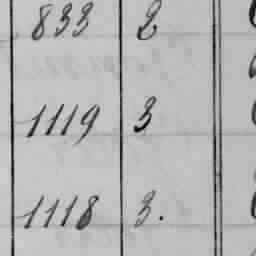 833 2
1119 3
1118 3.